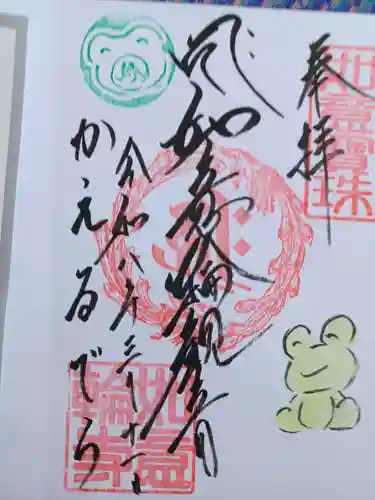 奉拝
如意寶珠
如意輪観音
令和八年三月十一日
かえるでら
如意輪寺